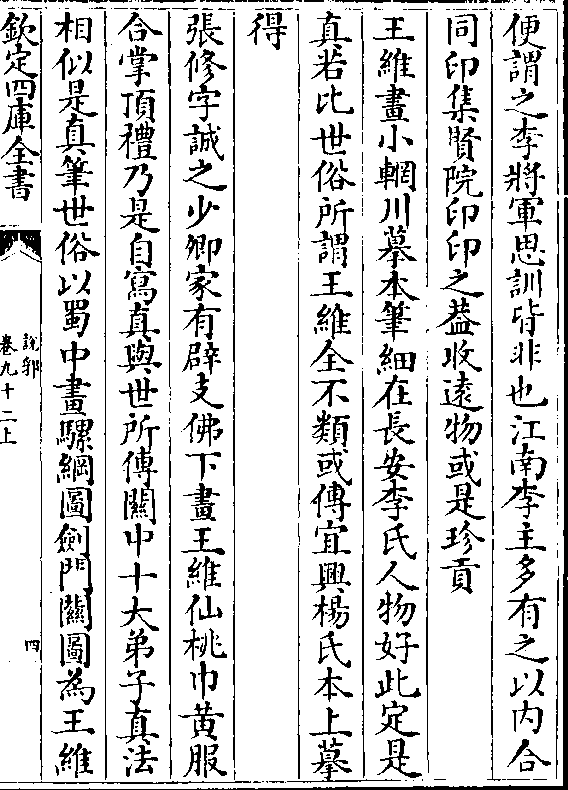 便謂之李將軍思訓皆非也江南李主多有之以内合
同印集賢院印印之葢收遠物或是珍貢
王維畫小輞川摹本筆細在長安李氏人物好此定是
真若比世俗所謂王維全不類或傳宜興楊氏本上摹
得
張修字誠之少卿家有辟支佛下畫王維仙桃巾黄服
合掌頂禮乃是自寫真與世所傳關中十大弟子真法
相似是真筆世俗以蜀中畫騾綱圖劍門關圖為王維
欽定四庫全書
說郛
卷九十二上
四